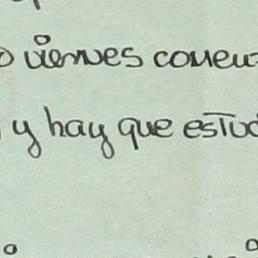 o viernes comen
y hay que estud